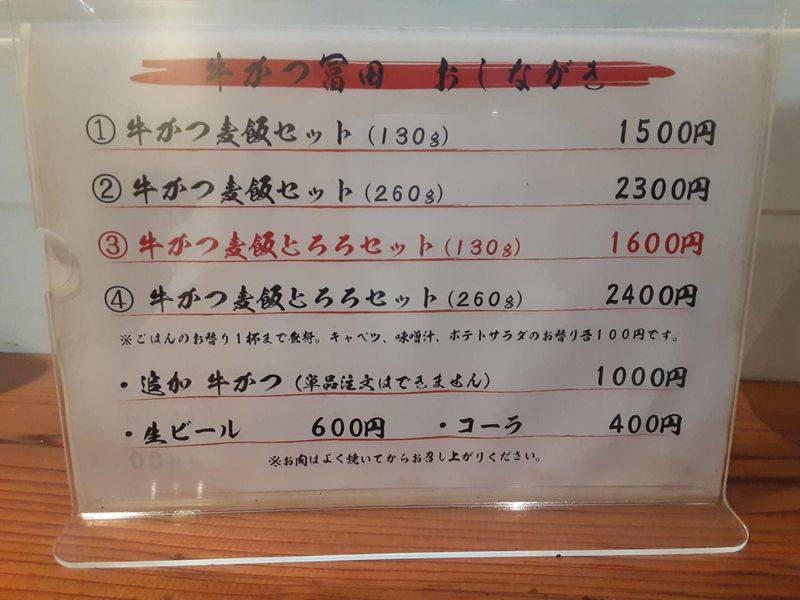 牛かつ冨田 おしながき
①牛かつ麦飯セット(130g) 1500円
②牛かつ麦飯セット(260g) 2300円
③牛かつ麦飯とろろセット(130g) 1600円
④牛かつ麦飯とろろセット(260g) 2400円
※ごはんのお替り1杯まで無料。キャベツ、味噌汁、ポテトサラダのお替り各100円です。
・追加 牛かつ(単品注文はできません) 1000円
・生ビール 600円 ・コーラ 400円
※お肉はよく焼いてからお召し上がりください。